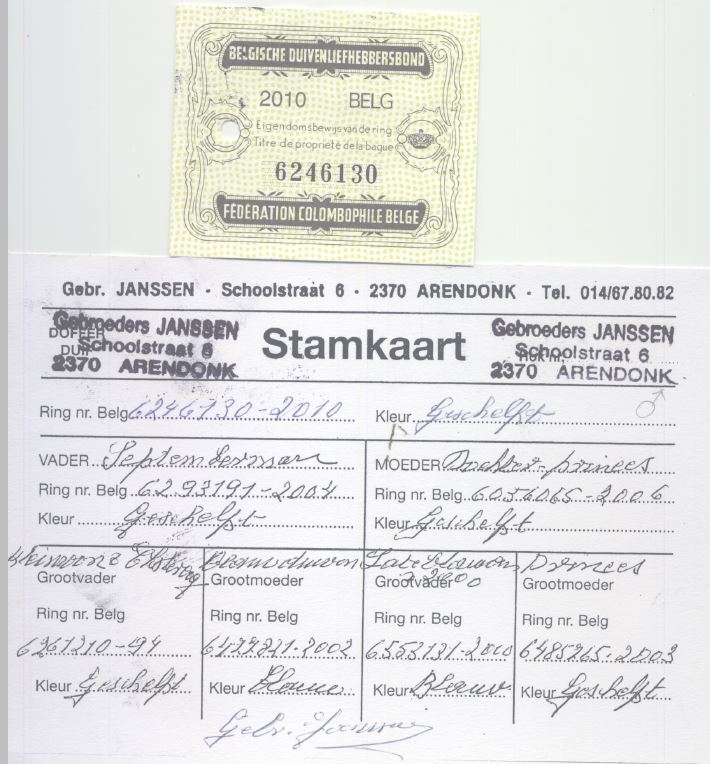 BELGISCHE DUIVENLIEFHEBBERSBOND
2010 BELG
Eigendomsbewijs van de ring
Titre de propriété de la bague
6246130
FÉDÉRATION COLOMBOPHILE BELGE
Gebr. JANSSEN - Schoolstraat 6 - 2370 ARENDONK - Tel. 014/67.80.82
Gebroeders JANSSEN
DOFFER
Schoolstraat 6
DUIF
2370 ARENDONK
Stamkaart
Gebroeders JANSSEN
Schoolstraat 6
2370 ARENDONK
♂
Ring nr. Belg 6246130-2010 Kleur Geschelpt
VADER Septemberman
Ring nr. Belg 6293191-2004
Kleur Geschelpt
MOEDER Dochter-princes
Ring nr. Belg 6036065-2006
Kleur Geschelpt
Grootvader
Ring nr. Belg
6261210-94
Kleur Geschelpt
Grootmoeder
Ring nr. Belg
6477821-2002
Kleur Blauw
Grootvader
Ring nr. Belg
6553131-2000
Kleur Blauw
Princes
Grootmoeder
Ring nr. Belg
6485265-2003
Kleur Geschelpt
Gebr. Janssen